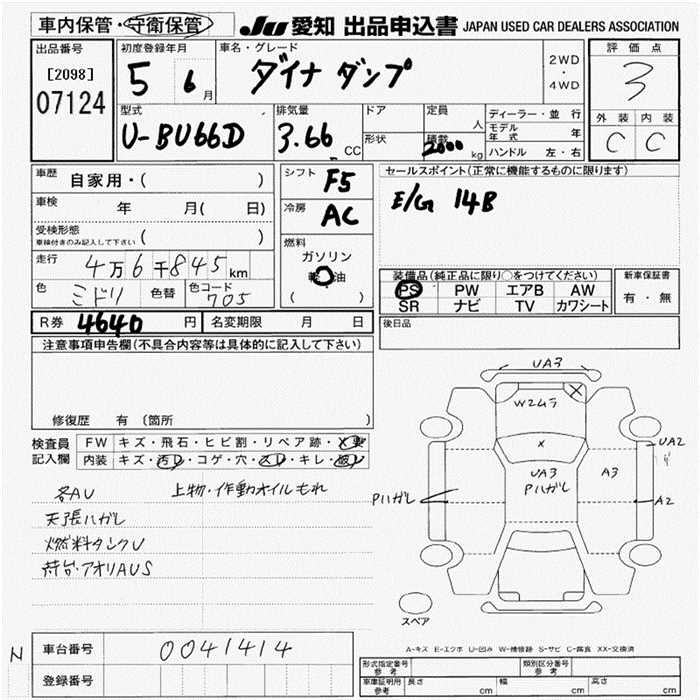 車内保管・守衛保管 JU 愛知 出品申込書 JAPAN USED CAR DEALERS ASSOCIATION
出品番号 [2098] 07124
初度登録年月 5 6月
車名・グレード ダイナ ダンプ
2WD・4WD
評価点 3
型式 U-BU66D
排気量 3.66 CC
ドア
形状
定員 人
積載 2000 kg
ディーラー・並行
モデル年式 年
ハンドル 左・右
外装 C 内装 C
車歴 自家用・( )
車検 年 月( 日)
受検形態 ( )
車検付きのみ記入して下さい
走行 4万6千845km
色 ミドリ 色替 色コード 705
シフト F5
冷房 AC
燃料
ガソリン
軽油
( )
セールスポイント(正常に機能するものに限ります)
E/G 14B
装備品(純正品に限り○をつけてください)
PS PW エアB AW
SR ナビ TV カワシート
新車保証書
有・無
R券 4640円 名変期限 月 日
後日品
注意事項申告欄(不具合内容等は具体的に記入して下さい)
修復歴 有(箇所 )
検査員記入欄
FW キズ・飛石・ヒビ割・リペア跡・X要
内装 キズ・汚レ・コゲ・穴・スレ・キレ・破レ
各AU 上物・作動オイルもれ
天張ハガレ
燃料タンクU
荷台・アオリAUS
UA3
W2ムラ
X
X
UA3
Pハガレ
A3
UA2
A2
Pハガレ
スペア
A-キズ E-エクボ U-凹み W-補修跡 S-サビ C-腐食 XX-交換済
N
車台番号 0041414
登録番号
形式指定番号 参考
類別区分番号 参考
車庫証明用 参考 長さ cm 幅 cm 高さ cm